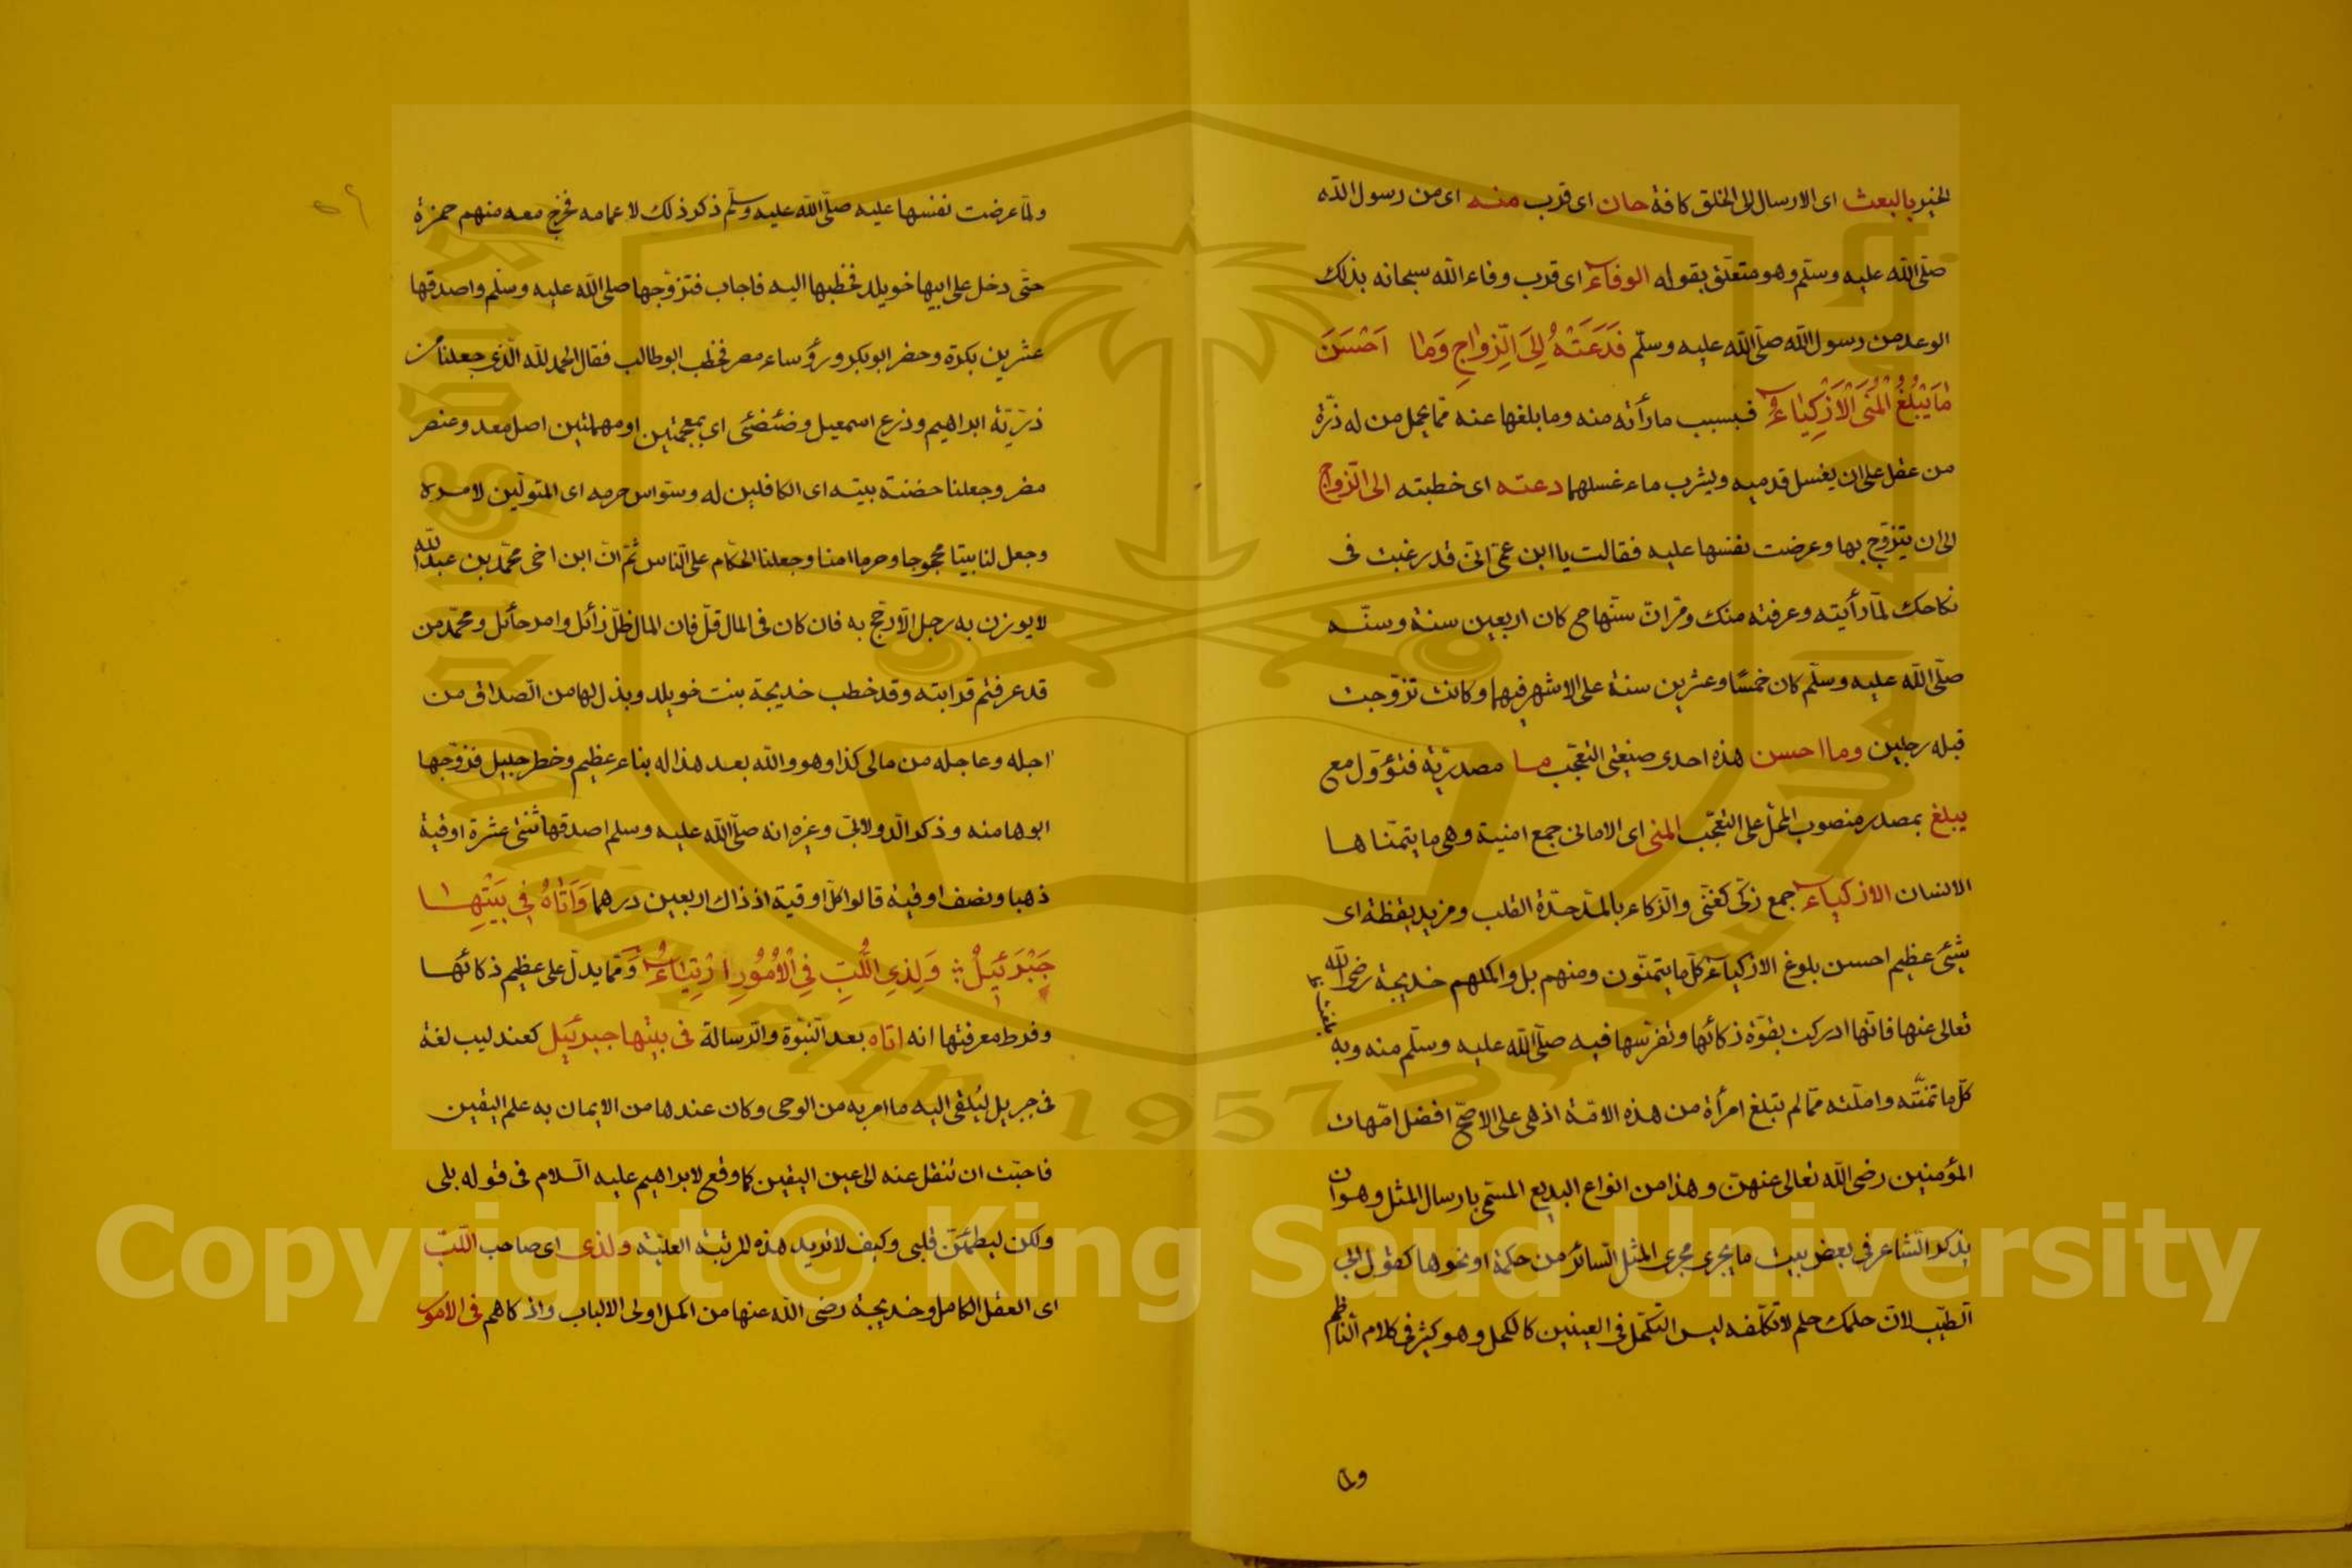 الخير بالبعث اى الارسال الى الخلق كافة حان اى قرب منه اى من رسول الله
صلّى الله عليه وسلّم وهو متعلّق بقوله الوفاء اى قرب وفاء الله سبحانه بذلك
الوعد من رسول الله صلّى الله عليه وسلّم فَدَعَتْهُ اِلَى الزِّوَاجِ وَمَا اَحْسَنَ
مَا يَبْلُغُ الْمُنَى الْاَذْكِيَاءُ فبسبب ما رأته منه وما بلغها عنه ممّا يحمل من له ذرّة
من عقل على ان يغسل قدميه ويشرب ماء غسلهما دعته اى خطبته الى الزواج
الى ان يتزوّج بها وعرضت نفسها عليه فقالت يا ابن عمّ انّى قد رغبت فى
نكاحك لمّا رأيته وعرفته منك ومرّ انّ سنّها ح كان اربعين سنة وسنّه
صلّى الله عليه وسلّم كان خمسًا وعشرين سنة على الاشهر فيهما وكانت تزوّجت
قبله رجلين وما احسن هذه احدى صيغتى التعجّب ما مصدريّة فتؤوّل مع
يبلغ بمصدر منصوب المحلّ على التعجّب المنى اى الامانى جمع امنية وهى ما يتمنّاها
الانسان الاذكياء جمع زكّى كغنّى والذكاء بالمدّ حدّة القلب ومزيد يقظة اى
شئ عظيم احسن بلوغ الاذكياء كلّ ما يتمنّون ومنهم بل واكملهم خديجة رضى الله
تعالى عنها فانّها ادركت بقوّة ذكائها وتفرّسها فيه صلّى الله عليه وسلّم منه وبه
كلّ ما تمنّته وامّلته ممّا لم تبلغ امرأة من هذه الامّة اذ هى على الاصحّ افضل امّهات
المؤمنين رضى الله تعالى عنهنّ وهذا من انواع البديع المسمّى بارسال المثل وهو ان
يذكر الشاعر فى بعض بيت ما يجرى مجرى المثل السائر من حكمة او نحوها كقول ابى
الطّيب لانّ حلمك حلم لا تكلّفه ليس التكحّل فى العينين كالكحل وهو كثير فى كلام الناظم
ولمّا
ولمّا عرضت نفسها عليه صلّى الله عليه وسلّم ذكر ذلك لاعمامه فخرج معه منهم حمزة
حتّى دخل على ابيها خويلد فخطبها اليه فاجاب فتزوّجها صلى الله عليه وسلّم واصدقها
عشرين بكرة وحضر ابوبكر ورؤساء مضر فخطب ابوطالب فقال الحمد لله الّذى جعلنا من
ذرّيّة ابراهيم وذرع اسمعيل وضئضئى اى بمعجمتين او مهملتين اصل معد وعنصر
مضر وجعلنا حضنة بيته اى الكافلين له وسوّاس حرمه اى المتولّين لامره
وجعل لنا بيتا محجوجا وحرما امنا وجعلنا الحكّام على النّاس ثمّ انّ ابن اخى محمّد بن عبد الله
لا يوزن به رجل الّا رجّح به فان كان فى المال قلّ فان المال ظلّ زائل وامر حائل ومحمّد من
قد عرفتم قرابته وقد خطب خديجة بنت خويلد وبذل لها من الصداق من
اجله وعاجله من مالى كذا وهو والله بعد هذا له بناء عظيم وخطر جليل فزوّجها
ابوها منه وذكر الدّولابىّ وغيره انه صلّى الله عليه وسلم اصدقها ثنتى عشرة اوقية
ذهبا ونصف اوقية قالوا كلّ اوقية اذ ذاك اربعين درهما وَاَتَاهُ فِى بَيْتِهَا
جَبْرَئِيلُ ؞ وَلِذِى اللُّبِّ فِى الْاُمُورِ ارْتِيَاءُ وممّا يدلّ على عظيم ذكائها
وفرط معرفتها انه اتاه بعد النّبوّة والرسالة فى بيتها جبرئيل كعندليب لغة
فى جبريل ليُلقى اليه ما امر به من الوحى وكان عندها من الايمان به علم اليقين
فاحبّت ان تنقل عنه الى عين اليقين كما وقع لابراهيم عليه السلام فى قوله بلى
ولكن ليطمئنّ قلبى وكيف لا تريد هذه المرتبة العليّة ولذى اى صاحب اللّبّ
اى العقل الكامل وخديجة رضى الله عنها من اكمل اولى الالباب واذكاهم فى الامور